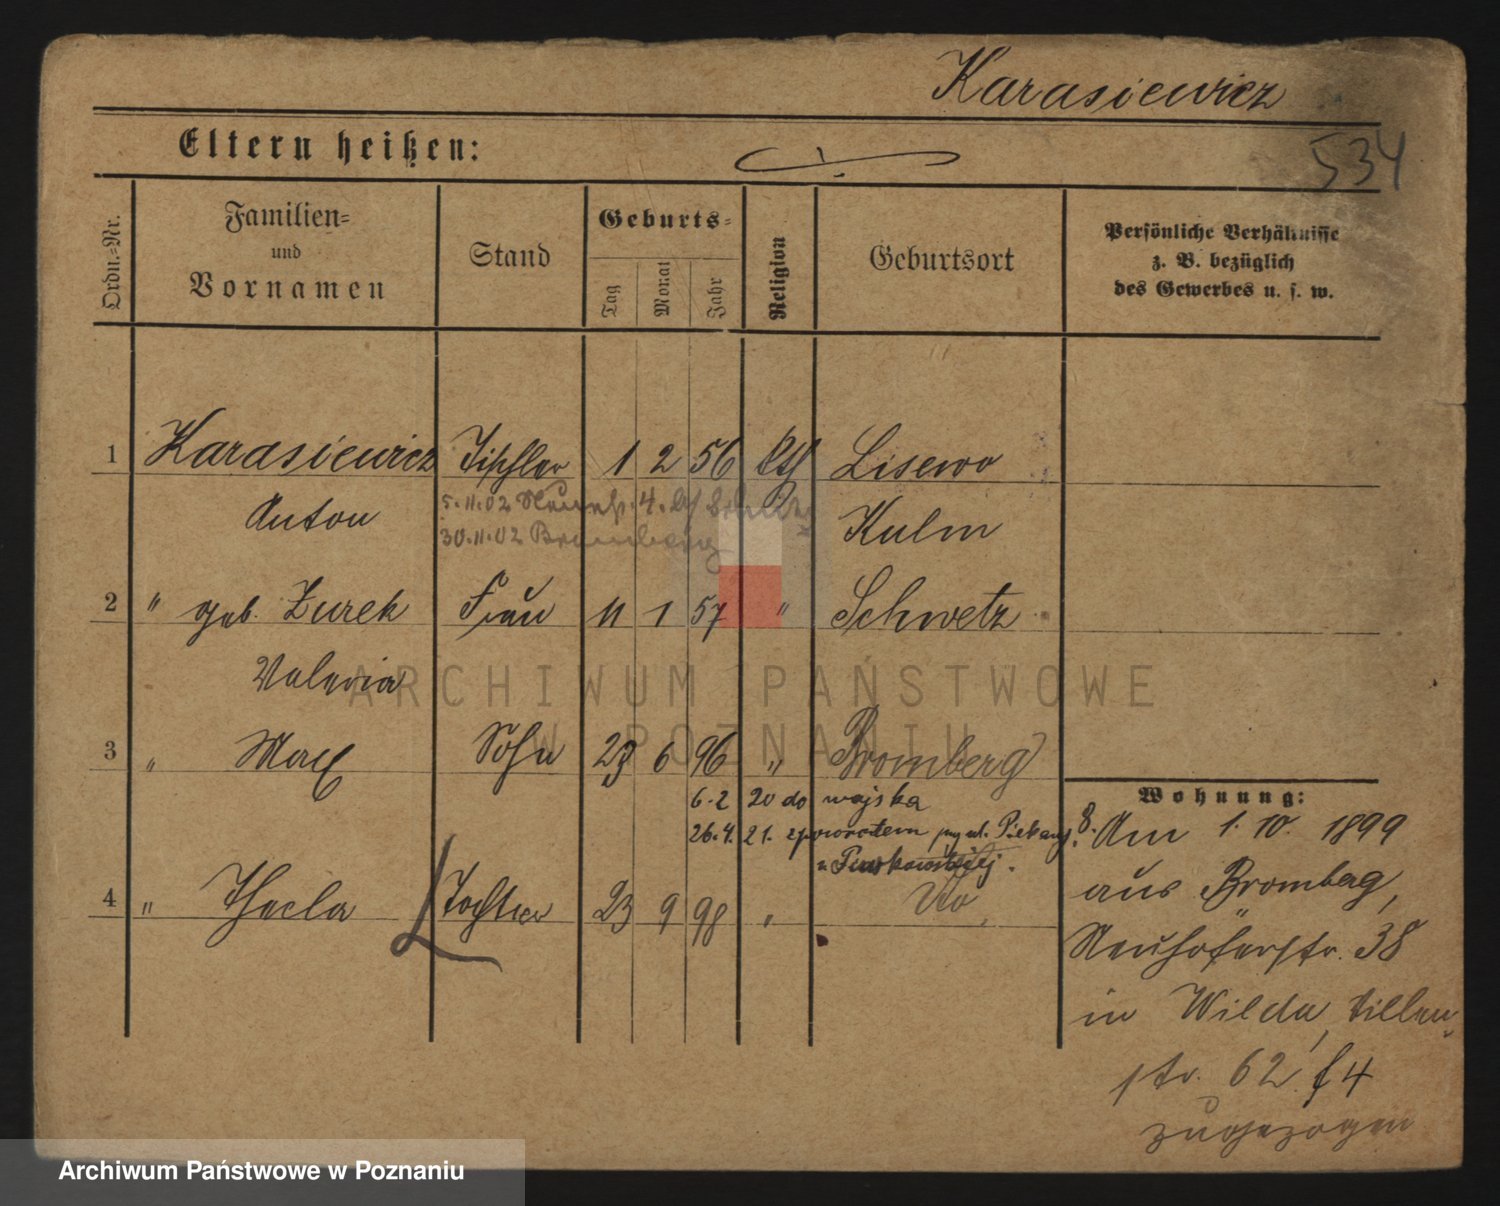 Karasiewicz
534
Eltern heißen:
Ordn.-Nr.
Familien-
und
Vornamen
Stand
Geburts-
Tag
Monat
Jahr
Religion
Geburtsort
Persönliche Verhältnisse
z. B. bezüglich
des Gewerbes u. s. w.
1 Karasiewicz Tischler 1 2 56 kth Lisewo
Anton Kulm
5.11.02
30.11.02 Bromberg
2 " geb. Żurek Frau 11 1 57 " Schwetz
Valeria
3 " Max Sohn 23 6 96 " Bromberg
6.2 20 do wojska
26.4.21. zpowrotem Piekary 8.
4 " Thecla Tochter 23 9 98 " Dto
Wohnung:
Am 1. 10. 1899
aus Bromberg,
Neuhöferstr. 38
in Wilda,
str. 62
zugezogen
ARCHIWUM PAŃSTWOWE
W POZNANIU
Archiwum Państwowe w Poznaniu